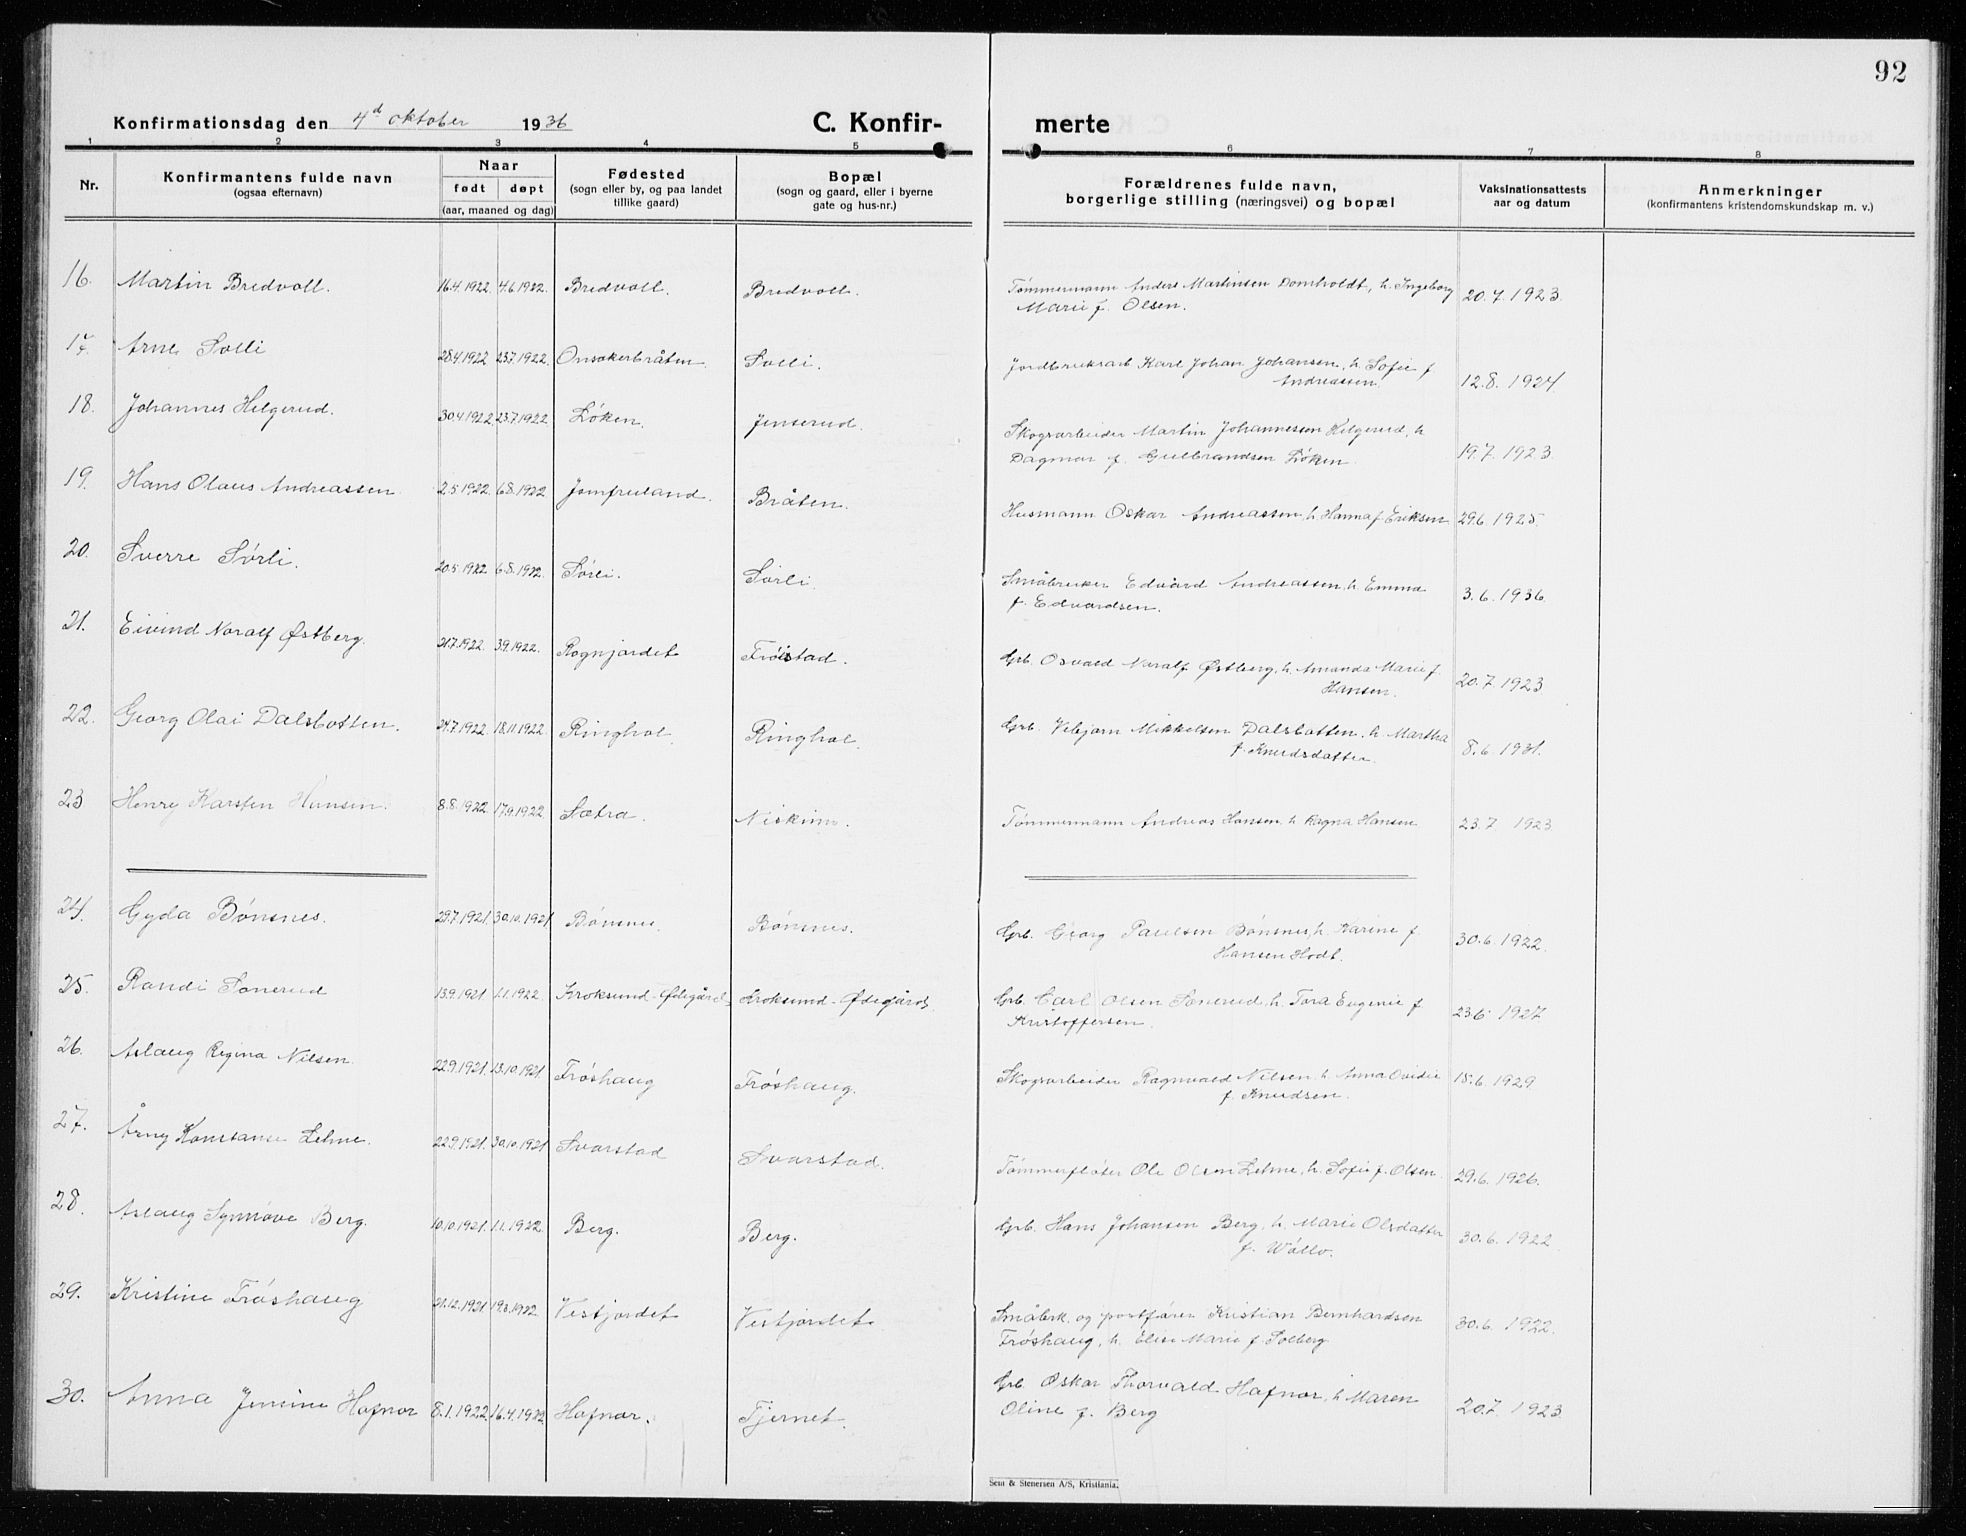 92
Konfirmationsdag den 4d oktober 1936 C. Konfir- merte
1 2 3 4 5 6 7 8
Nr. Konfirmantens fulde navn (ogsaa efternavn) Naar født døpt (aar, maaned og dag) Fødested (sogn eller by, og paa landet tillike gaard) Bopæl (sogn og gaard, eller i byerne gate og hus-nr.) Forældrenes fulde navn, borgerlige stilling (næringsvei) og bopæl Vaksinationsattests aar og datum Anmerkninger (konfirmantens kristendomskundskap m. v.)
16. Martin Bredvoll. 16.4.1922 4.6.1922. Bredvoll. Bredvoll. Tömmermann Anders Martinsen Domholdt, h. Ingeborg 20.7.1923.
Marie f. Olsen.
17. Arne Solli 28.4.1922 23.7.1922. Onsakerbråten Solli. Jordbruksarb Karl Johan Johansen, h. Sofie f.
Andreassen. 12.8.1924
18. Johannes Helgerud. 30.4.1922. 23.7.1922. Löken. Jenserud. Skogsarbeider Martin Johannessen Helgerud, h
Dagmar f. Gulbrandsen Löken. 19.7.1923.
19. Hans Olaus Andreassen 2.5.1922. 6.8.1922 Jomfruland. Bråten. Husmann Oskar Andreassen, h. Hanna f. Eriksen 29.6.1925.
20. Sverre Sörli. 20.5.1922 6.8.1922. Sörli. Sörli. Småbruker Edvard Andreassen, h. Emma
f. Edvardsen. 3.6.1936.
21. Eivind Noralf Østberg. 21.7.1922 3.9.1922. Rognjordet Fröistad. Grb. Osvald Noralf Østberg, h. Amanda Marie f.
Hansen. 20.7.1923
22. Georg Olai Dalsbotten. 24.7.1922 18.11.1922. Ringhol. Ringhol. Grb. Vebjörn Mikkelsen Dalsbotten, h. Martha
f. Knudsdatter. 8.6.1931.
23 Henry Karsten Hansen. 8.8.1922 17.9.1922 Sætra. Tömmermann Andreas Hansen, h Ragna Hansen 23.7 1923
24. Gyda Bönsnes. 29.7.1921. 30.10.1921 Bönsnes. Bönsnes. Grb. Georg Paulsen Bönsnes, h. Karine f.
Hansen Hodt. 30.6.1922.
25. Randi Sonerud 13.9.1921 1.1.1922. Kroksund-Ødegård Kroksund-Ødegård Grb. Carl Olsen Sonerud, h. Tora Eugenie f
Kristoffersen. 23.6 1927
26. Aslaug Regina Nilsen 22.9.1921. 13.10.1921. Fröshaug Fröshaug. Skogsarbeider Ragnvald Nilsen, h. Anna Ovidie 15.6.1929
f. Knudsen.
27. Årny Konstanse Lehne. 22.9.1921. 30.10.1921 Svarstad Svarstad. Tömmerflöter Ole Olsen Lehne, h. Sofie f. Olsen. 29.6.1926.
28. Aslaug Synnöve Berg. 10.10.1921. 1.1.1922. Berg. Berg. Grb. Hans Johansen Berg, h. Marie Olsdatter
f. Wöllo. 30.6.1922
29. Kristine Fröshaug 21.12.1921 19.3.1922. Vestjordet Vestjordet. Småbrk. og postförer Kristian Bernhardsen
Fröshaug, h. Elise Marie f. Solberg 30.6.1922.
30. Anna Jensine Hafnor 8.1.1922. 16.4.1922. Hafnor. Tjernet. Grb. Oskar Thorvald Hafnor, h Maren
Oline f. Berg 20.7.1923.
Sem & Stenersen A/S, Kristiania.